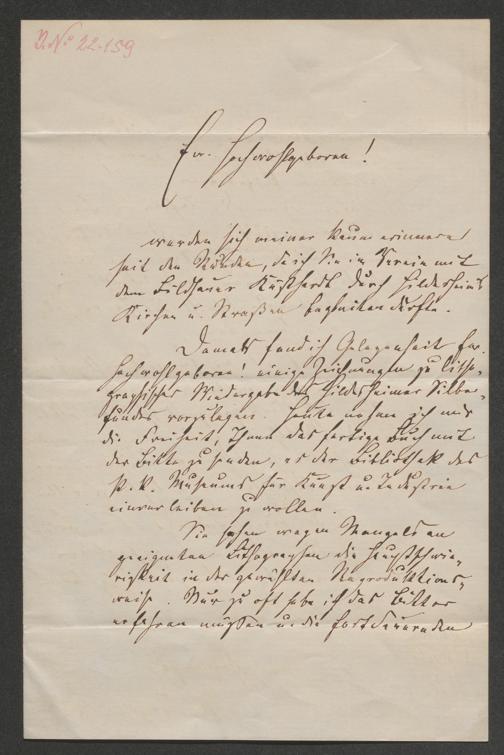 No 22-159
Ew. Hochwohlgeboren!
werden sich meiner kaum erinnern
seit den Stunden, da ich Sie im Verein mit
dem Bildhauer Küsthardt durch Hildesheims
Kirchen u. Straßen begleiten durfte.
Damals fand ich Gelegenheit Ew.
Hochwohlgeboren! einige Zeichnungen zu litho-
graphischer Wiedergabe des Hildesheimer Silber-
fundes vorzulegen. Heute nehme ich mir
die Freiheit, Ihnen das fertige Buch mit
der Bitte zu senden, es der Bibliothek des
k. k. Museums für Kunst u. Industrie
einverleiben zu wollen.
Sie sahen wegen Mangels an
geeigneten Lithographen die Hauptschwie-
rigkeit in der gewählten Reproduktions-
weise. Nur zu oft habe ich das Bittere
erfahren müssen u. die fortdauernden